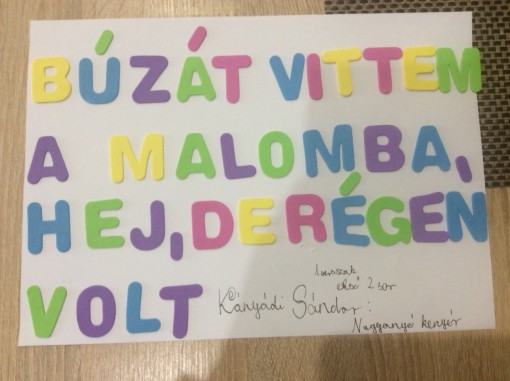 BÚZÁT VITTEM
A MALOMBA,
HEJ, DE RÉGEN
VOLT
1. versszak
első 2 sor
Kányádi Sándor:
Nagyanyó kenyér